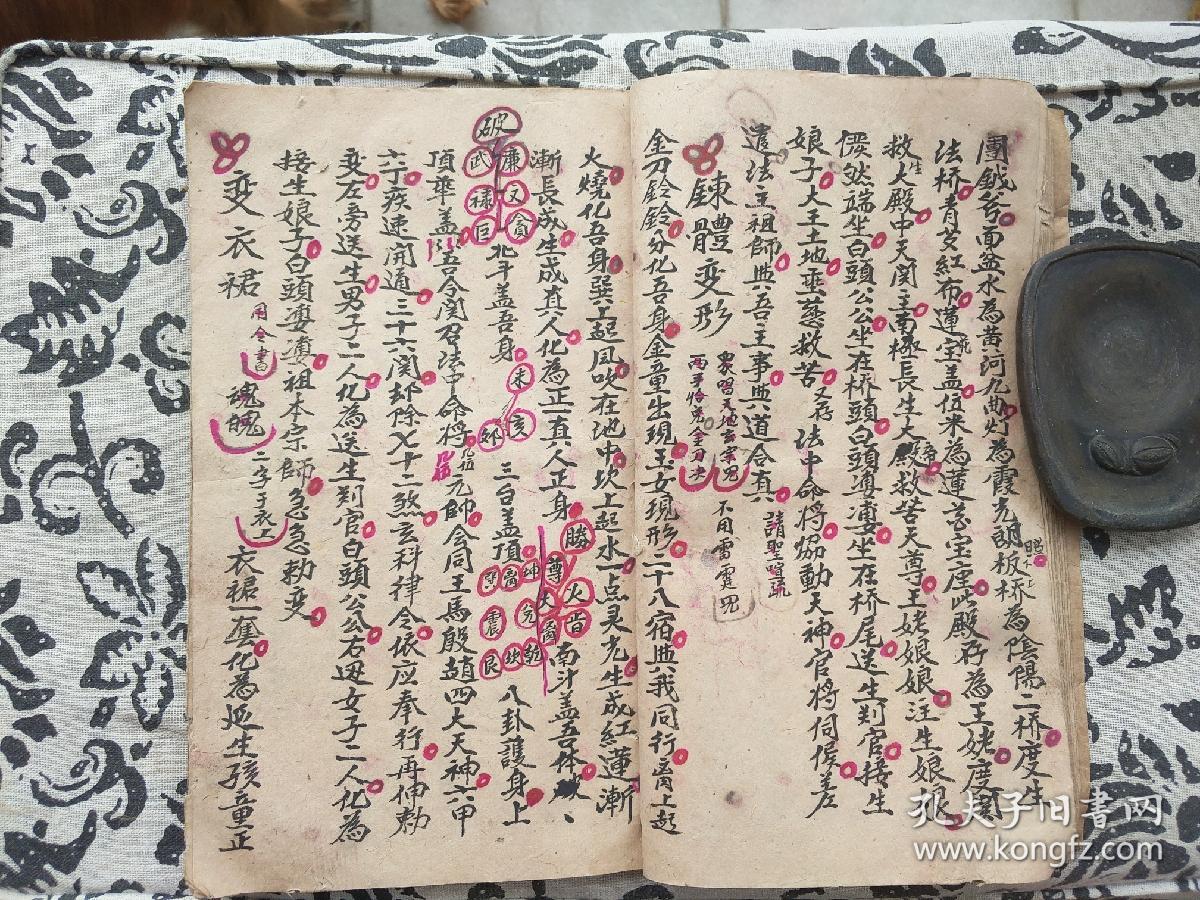 團鉞爷面盆水為黄河九曲灯為霞光明板桥為陰陽二桥度生
法桥青芗紅布蓮宝盖伍米為蓮苍宝座此殿存為王姥度関
救人殿中天関王南極長生大帝殿救苦天尊王姥娘娘注生娘娘
儼然端坐白頭公公坐在桥頭白頭婆婆坐在桥尾送生判官接生
娘子大王土地垂慈救苦又存法中命將协動天神官將伺候差
遣法主祖師与吾主事与道合真 請聖宣疏
錬體变形 不用雷霆咒
金刀鈴鈴分化吾身金童出現玉女現形二十八宿与我同行离上起
火燒化吾身巽上起风吹在池中坎上起水一点灵光生成紅蓮漸
漸長成生成真人化為正一真人正身 勝火昔 尊大 南斗盖吾体
破武廉禄文巨貪北斗盖吾身 未亥卯 三台盖頂 坤兑乾 震坎艮 八卦護身上
頂華盖 吾今関召法中命將 元帥会同王馬殷趙四大天神六甲
六丁疾速開通三十六関却除七十二煞玄科律令依应奉行再伸勅
变左旁送生男子二人化為送生判官白頭公公右边女子二人化為
接生娘子白頭婆婆祖本宗師急急勅变
变衣裙 用令書 魂魄 二字于衣上 衣裙一套化為延生孩童正
孔夫子旧书网
www.kongfz.com